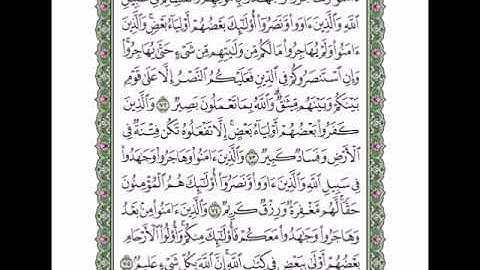 ٱللَّهِ وَٱلَّذِينَ ءَاوَوا۟ وَّنَصَرُوٓا۟ أُو۟لَـٰٓئِكَ بَعْضُهُمْ أَوْلِيَآءُ بَعْضٍ ۚ وَٱلَّذِينَ
ءَامَنُوا۟ وَلَمْ يُهَاجِرُوا۟ مَا لَكُم مِّن وَلَـٰيَتِهِم مِّن شَىْءٍ حَتَّىٰ يُهَاجِرُوا۟ ۚ
وَإِنِ ٱسْتَنصَرُوكُمْ فِى ٱلدِّينِ فَعَلَيْكُمُ ٱلنَّصْرُ إِلَّا عَلَىٰ قَوْمٍۭ
بَيْنَكُمْ وَبَيْنَهُم مِّيثَـٰقٌ ۗ وَٱللَّهُ بِمَا تَعْمَلُونَ بَصِيرٌ ﴿٧٢﴾ وَٱلَّذِينَ
كَفَرُوا۟ بَعْضُهُمْ أَوْلِيَآءُ بَعْضٍ ۚ إِلَّا تَفْعَلُوهُ تَكُن فِتْنَةٌ فِى
ٱلْأَرْضِ وَفَسَادٌ كَبِيرٌ ﴿٧٣﴾ وَٱلَّذِينَ ءَامَنُوا۟ وَهَاجَرُوا۟ وَجَـٰهَدُوا۟
فِى سَبِيلِ ٱللَّهِ وَٱلَّذِينَ ءَاوَوا۟ وَّنَصَرُوٓا۟ أُو۟لَـٰٓئِكَ هُمُ ٱلْمُؤْمِنُونَ
حَقًّا ۚ لَّهُم مَّغْفِرَةٌ وَرِزْقٌ كَرِيمٌ ﴿٧٤﴾ وَٱلَّذِينَ ءَامَنُوا۟ مِنۢ بَعْدُ
وَهَاجَرُوا۟ وَجَـٰهَدُوا۟ مَعَكُمْ فَأُو۟لَـٰٓئِكَ مِنكُمْ ۚ وَأُو۟لُوا۟ ٱلْأَرْحَامِ
بَعْضُهُمْ أَوْلَىٰ بِبَعْضٍ فِى كِتَـٰبِ ٱللَّهِ ۗ إِنَّ ٱللَّهَ بِكُلِّ شَىْءٍ عَلِيمٌۢ ﴿٧٥﴾